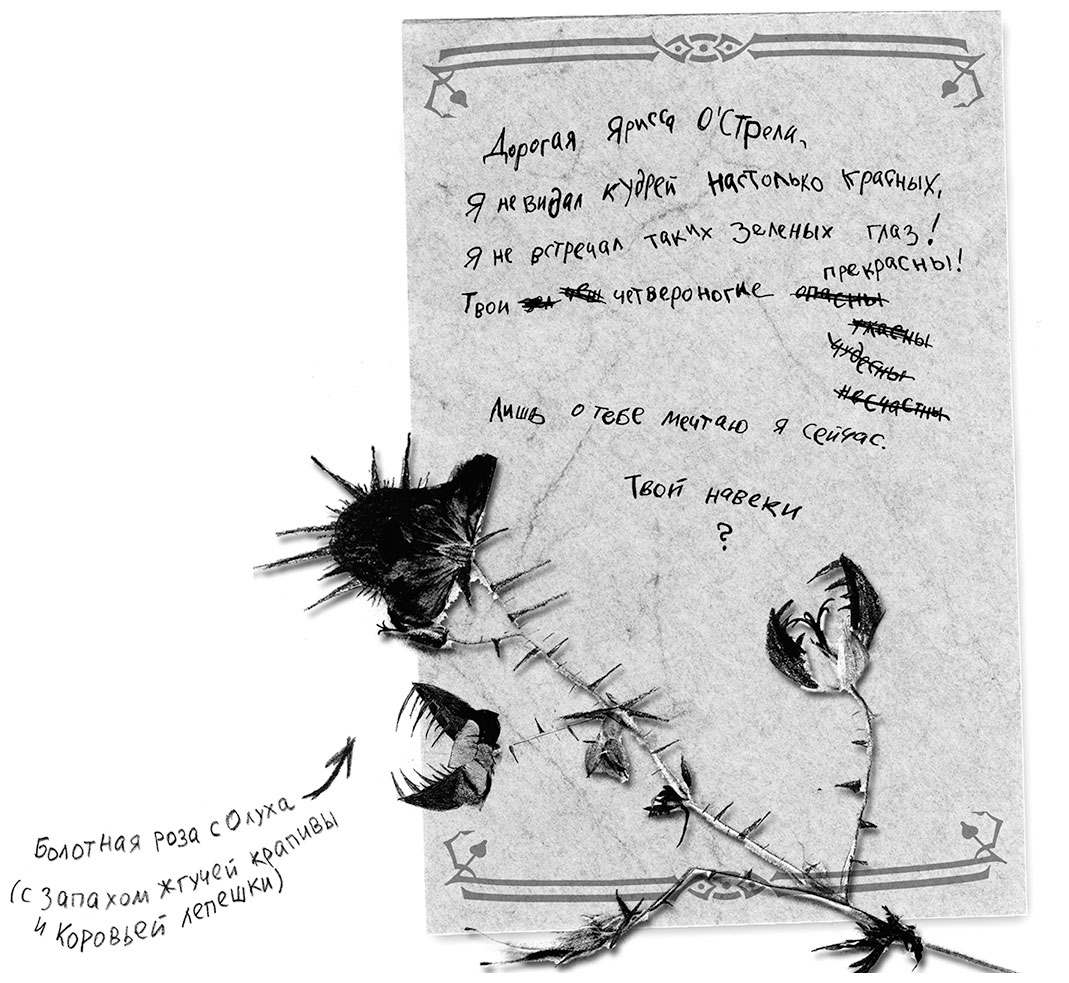 Дорогая Ярисса О'Стрела,
Я не видал кудрей настолько красных,
Я не встречал таких зеленых глаз!
прекрасны!
Твои зел теш четвероногие опасны
ужасны
чудесны
несчастны
Лишь о тебе мечтаю я сейчас.
Твой навеки
?
Болотная роза с Олуха
(с запахом жгучей крапивы
и коровьей лепешки)